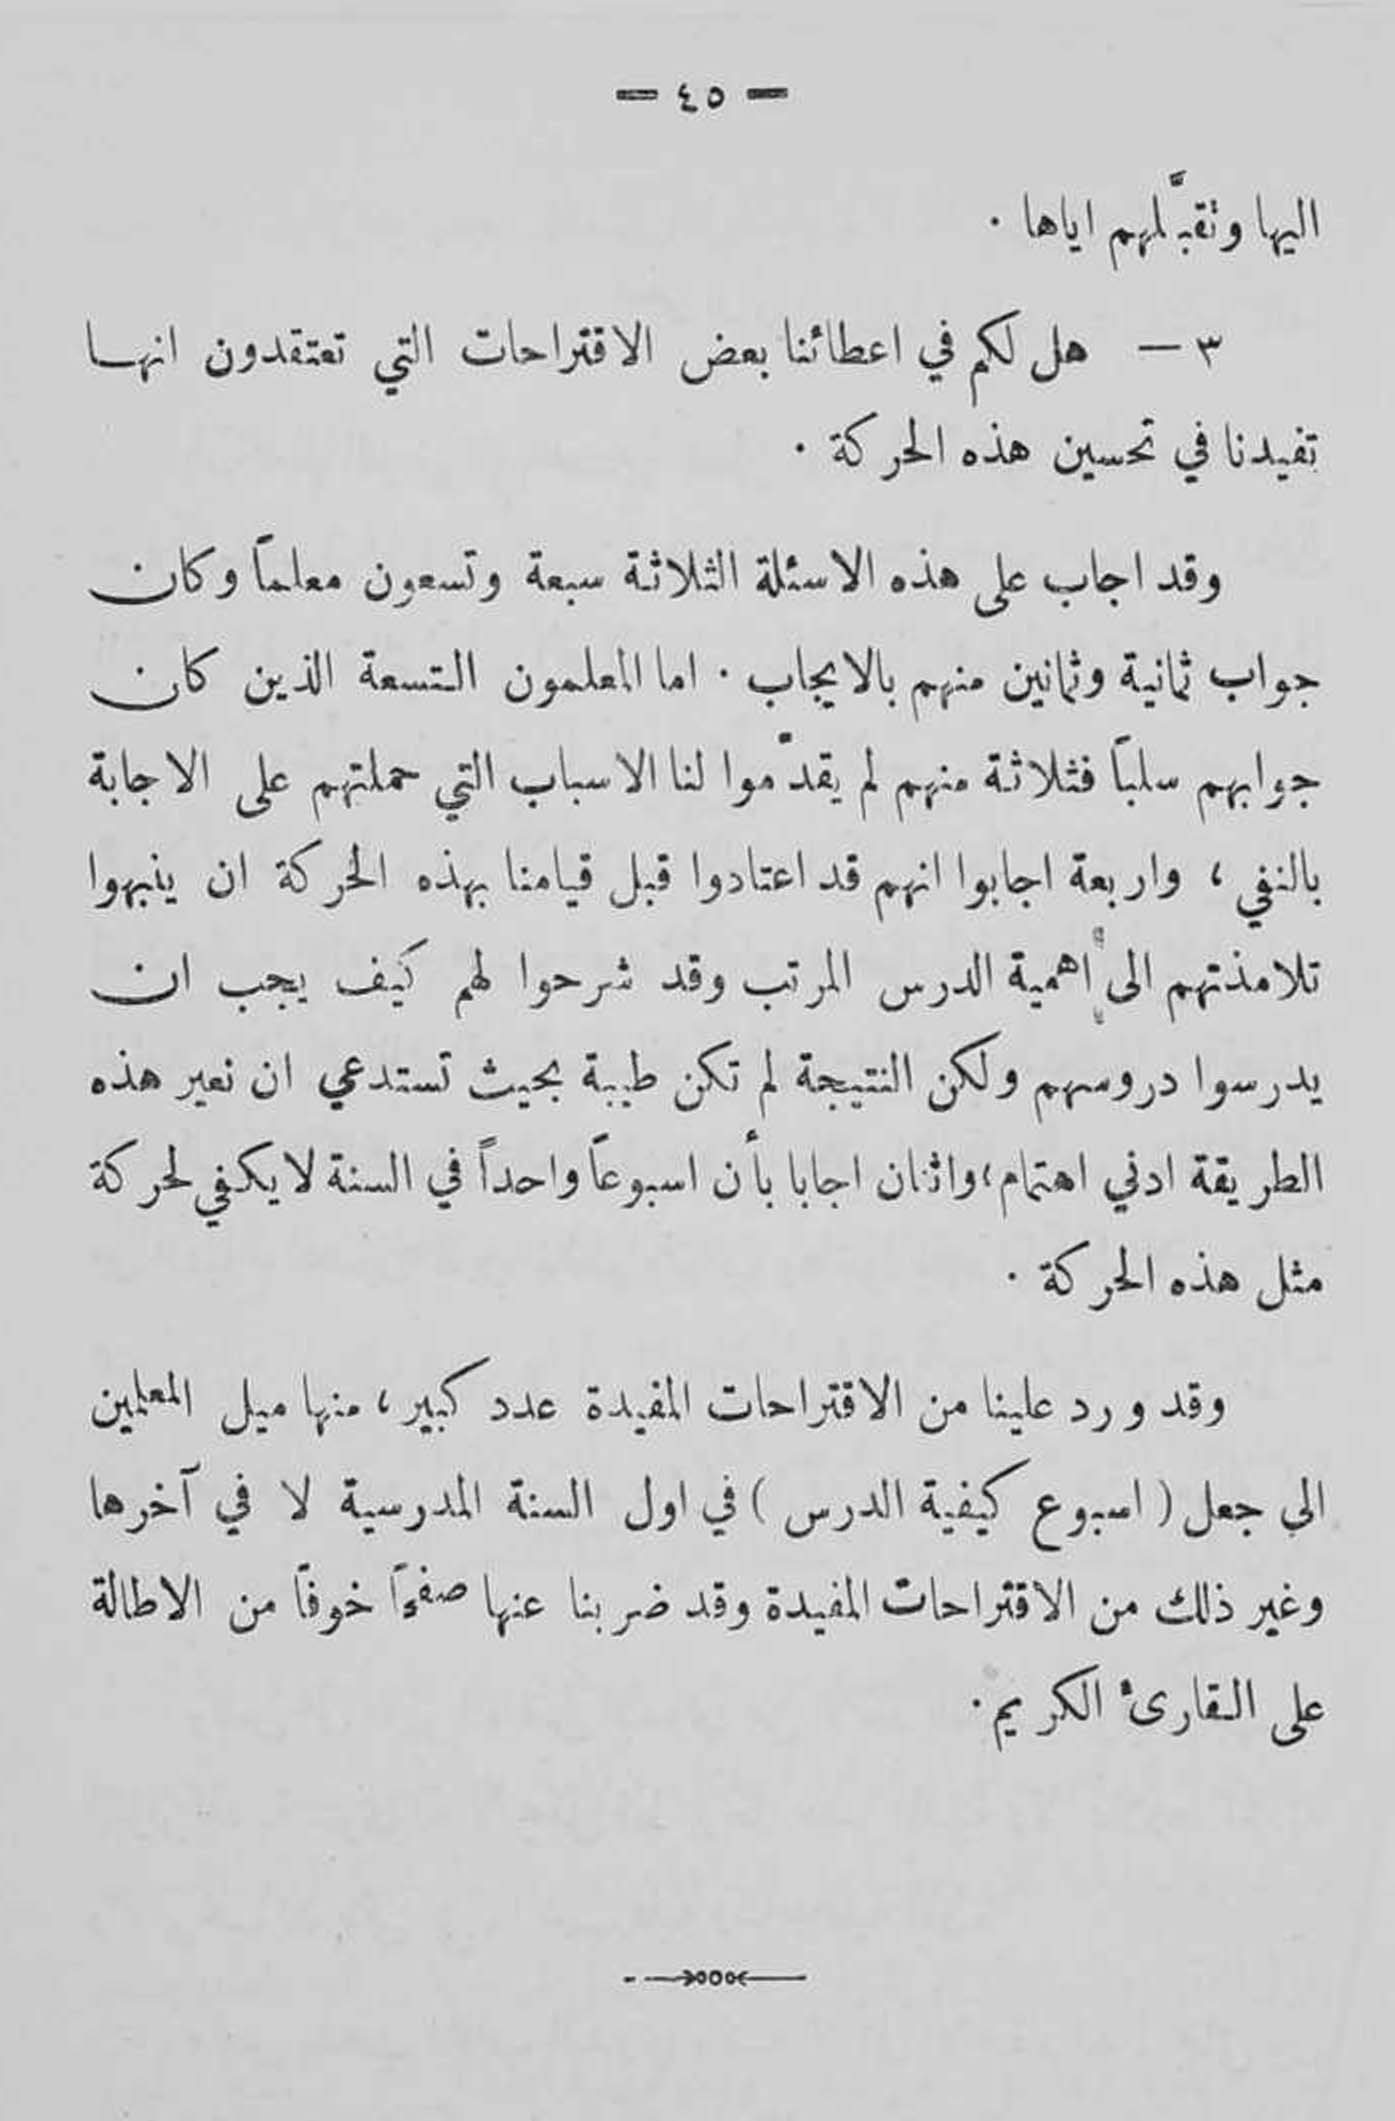 — ٤٥ —
اليها وتقبَّلهم اياها ·
٣ — هل لكم في اعطائنا بعض الاقتراحات التي تعتقدون انهـا
تفيدنا في تحسين هذه الحركة ·
وقد اجاب على هذه الاسئلة الثلاثة سبعة وتسعون معلماً وكان
جواب ثمانية وثمانين منهم بالايجاب · اما المعلمون التسعة الذين كان
جوابهم سلباً فثلاثة منهم لم يقدّموا لنا الاسباب التي حملتهم على الاجابة
بالنفي ، واربعة اجابوا انهم قد اعتادوا قبل قيامنا بهذه الحركة ان ينبهوا
تلامذتهم الى اهمية الدرس المرتب وقد شرحوا لهم كيف يجب ان
يدرسوا دروسهم ولكن النتيجة لم تكن طيبة بحيث تستدعي ان نعير هذه
الطريقة ادنى اهتمام ، واثنان اجابا بأن اسبوعاً واحداً في السنة لا يكفي لحركة
مثل هذه الحركة ·
وقد ورد علينا من الاقتراحات المفيدة عدد كبير ، منها ميل المعلمين
الى جعل ( اسبوع كيفية الدرس ) في اول السنة المدرسية لا في آخرها
وغير ذلك من الاقتراحات المفيدة وقد ضربنا عنها صفحاً خوفاً من الاطالة
على القارئ الكريم ·